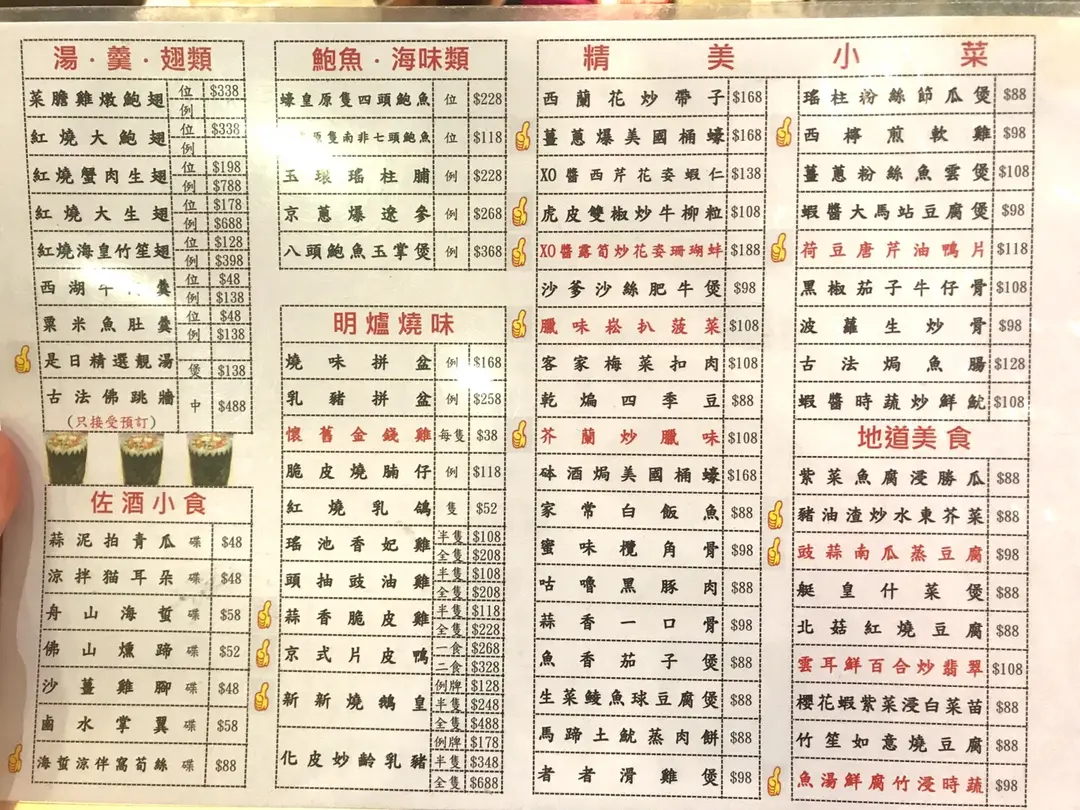 湯·羹·翅類
菜膽雞燉鮑翅 位 $338
例
紅燒大鮑翅 位 $338
例
紅燒蟹肉生翅 位 $198
例 $788
紅燒大生翅 位 $178
例 $688
紅燒海皇竹笙翅 位 $128
例 $398
西湖牛 羹 位 $48
例 $138
粟米魚肚羹 位 $48
例 $138
是日精選靚湯 煲 $138
古法佛跳牆 中 $488
(只接受預訂)
佐酒小食
蒜泥拍青瓜 碟 $48
涼拌猫耳朵 碟 $48
舟山海蜇 碟 $58
佛山燻蹄 碟 $52
沙薑雞腳 碟 $48
鹵水掌翼 碟 $58
海蜇涼伴窩荀絲 碟 $88
鮑魚·海味類
蠔皇原隻四頭鮑魚 位 $228
原隻南非七頭鮑魚 位 $118
玉環瑤柱脯 例 $228
京蔥爆遼參 例 $268
八頭鮑魚玉掌煲 例 $368
明爐燒味
燒味拼盆 例 $168
乳豬拼盆 例 $258
懷舊金錢雞 每隻 $38
脆皮燒腩仔 例 $118
紅燒乳鴿 隻 $52
瑤池香妃雞 半隻 $108
全隻 $208
頭抽豉油雞 半隻 $108
全隻 $208
蒜香脆皮雞 半隻 $118
全隻 $228
京式片皮鴨 一食 $268
二食 $328
新新燒鵝皇 例牌 $128
半隻 $248
全隻 $488
化皮妙齡乳豬 例牌 $178
半隻 $348
全隻 $688
精美小菜
西蘭花炒帶子 $168
薑蔥爆美國桶蠔 $168
XO醬西芹花姿蝦仁 $138
虎皮雙椒炒牛柳粒 $108
XO醬露筍炒花姿珊瑚蚌 $188
沙爹沙絲肥牛煲 $98
臘味崧扒菠菜 $108
客家梅菜扣肉 $108
乾煸四季豆 $88
芥蘭炒臘味 $108
砵酒焗美國桶蠔 $168
家常白飯魚 $88
蜜味欖角骨 $98
咕嚕黑豚肉 $88
蒜香一口骨 $98
魚香茄子煲 $88
生菜鯪魚球豆腐煲 $88
馬蹄土魷蒸肉餅 $88
者者滑雞煲 $98
瑤柱粉絲節瓜煲 $88
西檸煎軟雞 $98
薑蔥粉絲魚雲煲 $108
蝦醬大馬站豆腐煲 $98
荷豆唐芹油鴨片 $118
黑椒茄子牛仔骨 $108
波蘿生炒骨 $98
古法焗魚腸 $128
蝦醬時蔬炒鮮魷 $108
地道美食
紫菜魚腐浸勝瓜 $88
豬油渣炒水東芥菜 $88
豉蒜南瓜蒸豆腐 $98
艇皇什菜煲 $88
北菇紅燒豆腐 $88
雲耳鮮百合炒翡翠 $108
櫻花蝦紫菜浸白菜苗 $88
竹笙如意燒豆腐 $88
魚湯鮮腐竹浸時蔬 $98